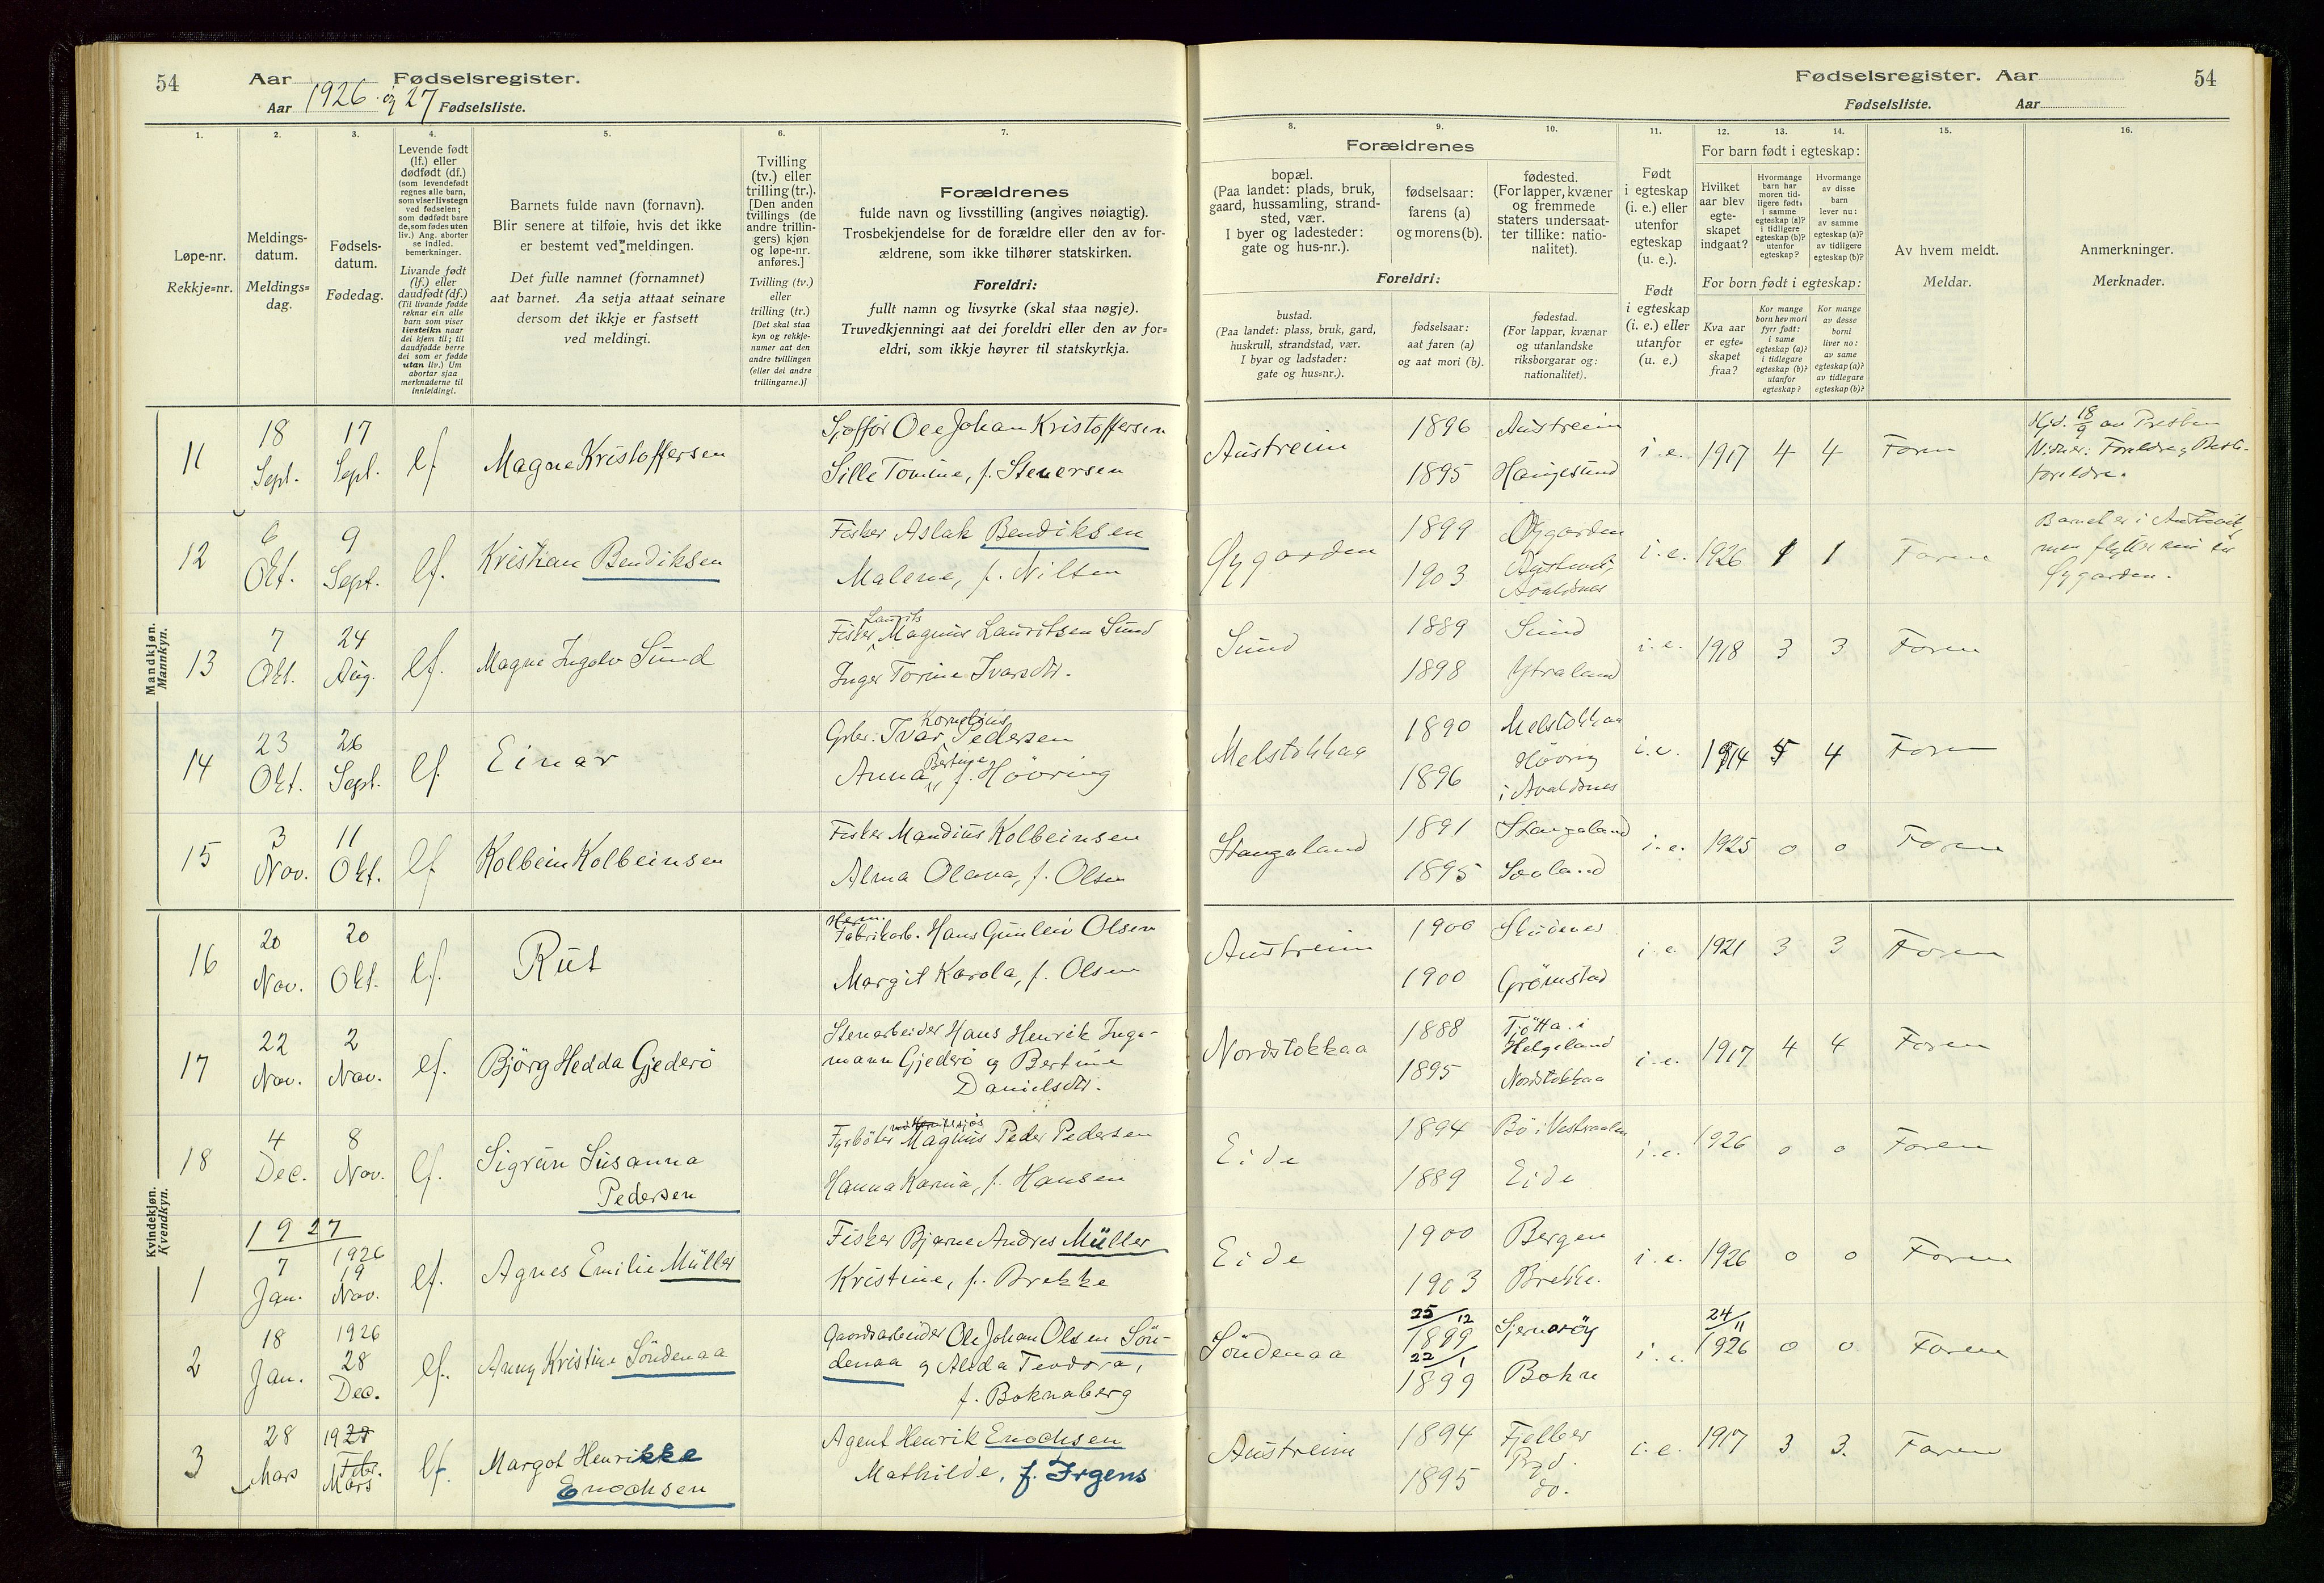 54
Aar
Fødselsregister.
Aar 1926 og 27 Fødselsliste.
Fødselsregister. Aar
54
Fødselsliste. Aar
1.
2.
3.
4.
5.
6.
7.
8.
9.
10.
11.
12.
13.
14.
15.
16.
Løpe-nr.
Rekkje=nr.
Meldings-
datum.
Meldings=
dag.
Fødsels-
datum.
Fødedag.
Levende født
(lf.) eller
dødfødt (df.)
(som levendefødt
regnes alle barn,
som viser livstegn
ved fødselen;
som dødfødt bare
de, som fødes uten
liv.) Ang. aborter
se indled.
bemerkninger.
Livande født
(lf.) eller
daudfødt (df.)
(Til livande fødde
reknar ein alle
barn som viser
livsteikn naar
dei kjem til; til
daudfødde berre
dei som er fødde
utan liv.) Um
abortar sjaa
merknaderne til
innleidingi.
Barnets fulde navn (fornavn).
Blir senere at tilføie, hvis det ikke
er bestemt ved meldingen.
Det fulle namnet (fornamnet)
aat barnet. Aa setja attaat seinare
dersom det ikkje er fastsett
ved meldingi.
Tvilling
(tv.) eller
trilling (tr.).
[Den anden
tvillings (de
andre trillin-
gers) kjøn
og løpe-nr.
anføres.]
Tvilling (tv.)
eller
trilling (tr.)
[Det skal staa
kyn og rekkje-
numer aat den
andre tvillingen
(eller dei andre
trillingarne.)]
Forældrenes
fulde navn og livsstilling (angives nøiagtig).
Trosbekjendelse for de forældre eller den av for-
ældrene, som ikke tilhører statskirken.
Foreldri:
fullt namn og livsyrke (skal staa nøgje).
Truvedkjenningi aat dei foreldri eller den av for=
eldri, som ikkje høyrer til statskyrkja.
Forældrenes
bopæl.
(Paa landet: plads, bruk,
gaard, hussamling, strand-
sted, vær.
I byer og ladesteder:
gate og hus-nr.).
fødselsaar:
farens (a)
og morens (b).
fødested.
(For lapper, kvæner
og fremmede
staters undersaat-
ter tillike: natio-
nalitet).
Foreldri:
bustad.
(Paa landet: plass, bruk, gard,
huskrull, strandstad, vær.
I byar og ladstader:
gate og hus=nr.).
fødselsaar:
aat faren (a)
og aat mori (b).
fødestad.
(For lappar, kvænar
og utanlandske
riksborgarar og:
nationalitet).
Født
i egteskap
(i. e.) eller
utenfor
egteskap
(u. e.).
Født
i egteskap
(i. e.) eller
utanfor
(u. e.)
For barn født i egteskap:
Hvilket
aar blev
egte-
skapet
indgaat?
Hvormange
barn har
moren tid-
ligere født:
i samme
egteskap (a)?
i tidligere
egteskap (b)?
utenfor
egteskap?
Hvormange
av disse
barn
lever nu:
av samme
egteskap (a)?
av tidligere
egteskap (b)?
For born født i egteskap:
Kva aar
er egte=
skapet
fraa?
Kor mange
born hev mori
fyrr født:
i same
egteskap (a)?
i tidlegare
egteskap (b)?
utanfor
egteskap?
Kor mange
av desse
borni
liver no:
av same
egteskap (a)?
av tidlegare
egteskap (b)?
Av hvem meldt.
Meldar.
Anmerkninger.
Merknader.
Mandkjøn.
Mannkyn.
11
18 Sept.
17 Sept.
lf
Magne Kristoffersen
Sjøffør Ole Johan Kristoffersen
Sille Tomine, f. Stenersen
Austreim
1896
1895
Austreim
Haugesund
i.e. 1917 4 4 Faren
Hjd. 18/9 av Presten
Vidner: Foreldre og Beste-
foreldre.
12
6 Okt.
9 Sept.
lf.
Kristian Bendiksen
Fisker Aslak Bendiksen
Malene, f. Nilsen
Øygarden
1899
1903
Øygarden
Avaldsnes
i.e. 1926 1 1 Faren
Barnet er i
men flytter til
Øygarden.
13
7 Okt.
24 Aug.
lf.
Magne Ingolv Sund
Laurits
Fisker Magnus Lauritsen Sund
Inger Torine Ivarsdtr.
Sund
1889
1898
Sund
Ytraland
i.e. 1918 3 3 Faren
14
23 Okt.
26 Sept.
lf.
Einar
Kornelius
Gbr. Ivar Pedersen
Bertine
Anna, f. Høvring
Melstokkaa
1890
1896
Melstokkaa
Høvring
i Avaldsnes
i.e. 1914 4 Faren
15
3 Nov.
11 Okt.
lf
Kolbein Kolbeinsen
Fisker Mandius Kolbeinsen
Alma Olava, f. Olsen
Stangeland
1891
1895
Stangeland
Sæland
i.e. 1925 0 0 Faren
Kvindekjøn.
Kvendkyn.
16
20 Nov.
20 Okt.
lf.
Rut
Herm.
Fabrikarb. Hans Gunleiv Olsen
Margit Karola, f. Olsen
Austreim
1900
1900
Skudenes
Grömstad
i.e. 1921 3 3 Faren
17
22 Nov.
2 Nov.
lf.
Björg Hedda Gjederö
Stenarbeider Hans Henrik Inge-
mann Gjederö og Bertine
Danielsdtr.
Nordstokkaa
1888
1895
Tjötta i
Helgeland
Nordstokkaa
i.e. 1917 4 4 Faren
18
4 Dec.
8 Nov.
lf.
Sigrun Susanna
Pedersen
Fyrböter Magnus Peder Pedersen
Hanna Karina, f. Hansen
Eide
1894
1889
Bö i Vestraalen
Eide
i.e. 1926 0 0 Faren
1927
1
7 Jan.
1926
19 Nov.
lf.
Agnes Emilie Müller
Fisker Bjarne Andres Müller
Kristine, f. Brekke
Eide
1900
1903
Bergen
Brekke.
i.e. 1926 0 0 Faren
2
18 Jan.
1926
28 Dec.
lf.
Anny Kristine Söndenaa
Gaardsarbeider Ole Johan Olsen Sön-
denaa og Alida Teodora,
f. Boknaberg
Söndenaa
25/12
1899
22/1
1899
Sjernaröy
Bokn
i.e. 24/11 1926 0 0 Faren
3
28 Mars
1927
Febr.
Mars
lf.
Margot Henrikke
Enochsen
Agent Henrik Enochsen
Mathilde, f. Irgens
Austreim
1894
1895
Fjelber
do.
i.e. 1917 3 3. Faren